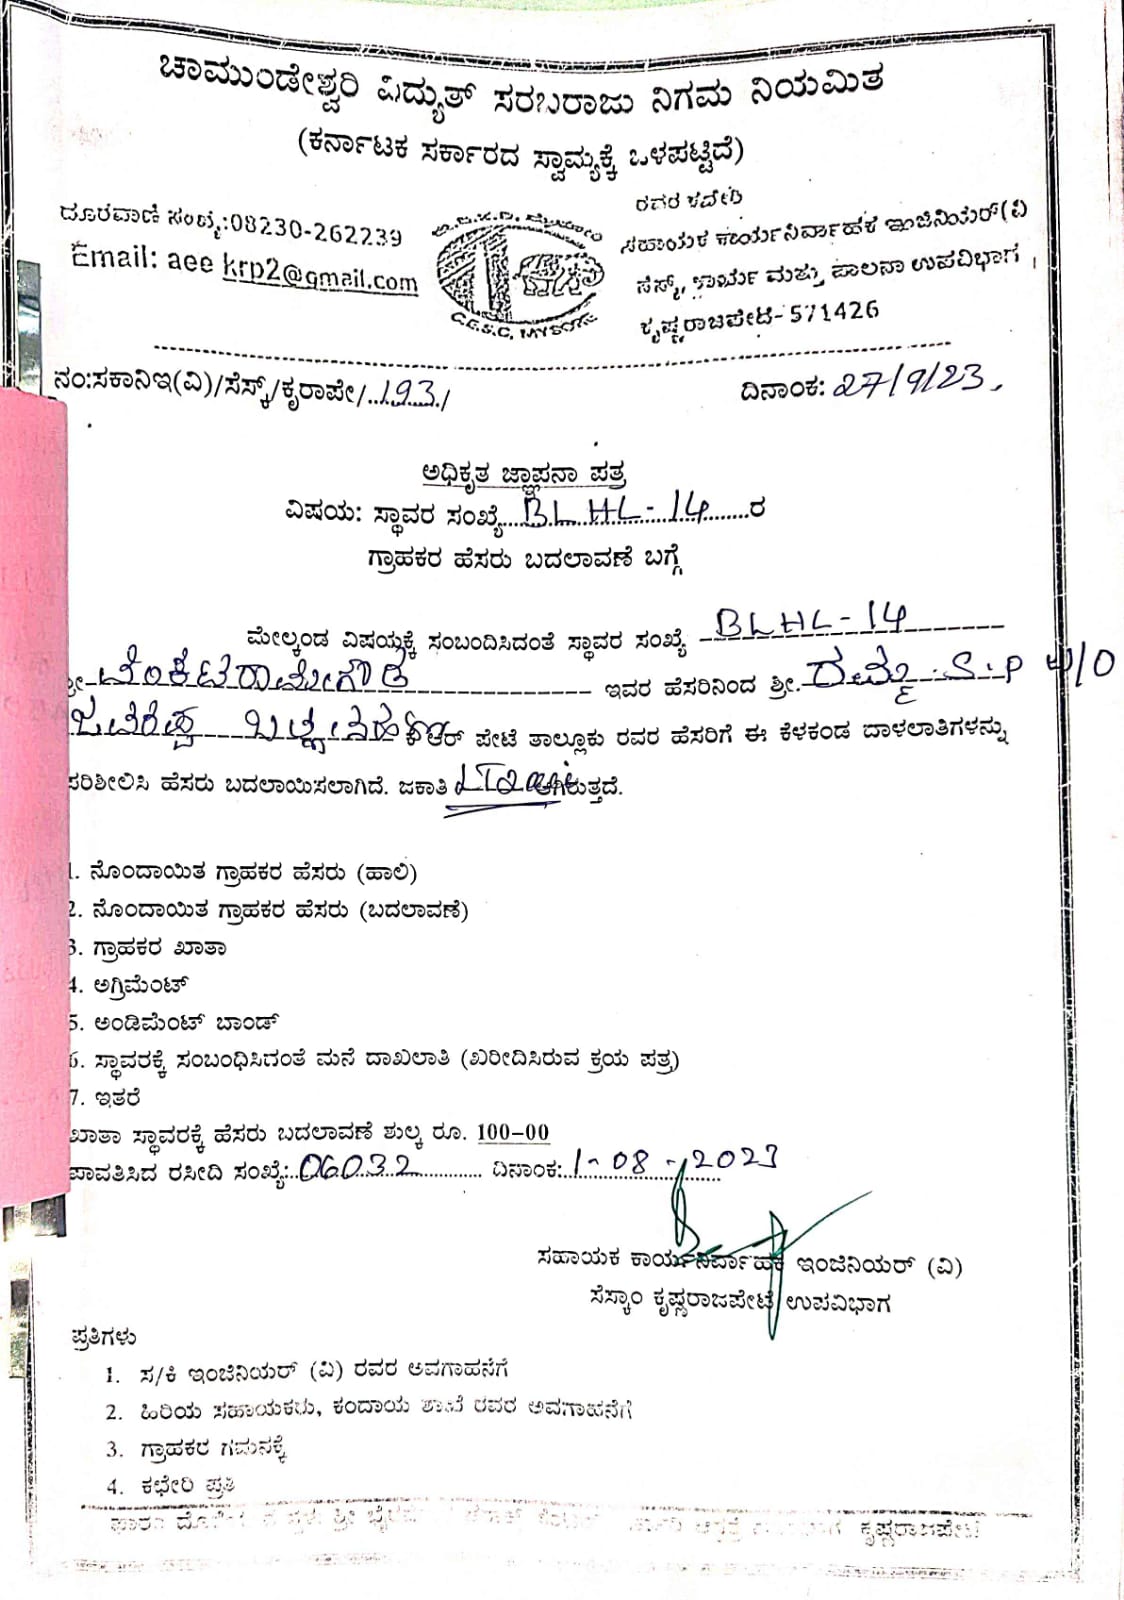 ಚಾಮುಂಡೇಶ್ವರಿ ವಿದ್ಯುತ್ ಸರಬರಾಜು ನಿಗಮ ನಿಯಮಿತ
(ಕರ್ನಾಟಕ ಸರ್ಕಾರದ ಸ್ವಾಮ್ಯಕ್ಕೆ ಒಳಪಟ್ಟಿದೆ)
ರವರ ಕಚೇರಿ
ದೂರವಾಣಿ ಸಂಖ್ಯೆ:08230-262239
ಸಹಾಯಕ ಕಾರ್ಯನಿರ್ವಾಹಕ ಇಂಜಿನಿಯರ್(ವಿ
Email: aee krp2@gmail.com
ಸೆಸ್ಕ್, ಕಾರ್ಯ ಮತ್ತು ಪಾಲನಾ ಉಪವಿಭಾಗ
C.E.S.C, MYSORE
ಕೃಷ್ಣರಾಜಪೇಟೆ-571426
ನಂ:ಸಕಾನಿಇ(ವಿ)/ಸೆಸ್ಕ್/ಕೃರಾಪೇ/..193./
ದಿನಾಂಕ: 27/9/23.
ಅಧಿಕೃತ ಜ್ಞಾಪನಾ ಪತ್ರ
ವಿಷಯ: ಸ್ಥಾವರ ಸಂಖ್ಯೆ....BLHL-14.......ರ
ಗ್ರಾಹಕರ ಹೆಸರು ಬದಲಾವಣೆ ಬಗ್ಗೆ
ಮೇಲ್ಕಂಡ ವಿಷಯಕ್ಕೆ ಸಂಬಂದಿಸಿದಂತೆ ಸ್ಥಾವರ ಸಂಖ್ಯೆ BLHL-14
ಶ್ರೀ. ವೆಂಕಟರಾಮೇಗೌಡ ಇವರ ಹೆಸರಿನಿಂದ ಶ್ರೀ. ರಮ್ಯ .S.P W/O
ಜವರೇಪ್ಪ ಕೆ ಆರ್ ಪೇಟೆ ತಾಲ್ಲೂಕು ರವರ ಹೆಸರಿಗೆ ಈ ಕೆಳಕಂಡ ದಾಖಲಾತಿಗಳನ್ನು
ಪರಿಶೀಲಿಸಿ ಹೆಸರು ಬದಲಾಯಿಸಲಾಗಿದೆ. ಜಕಾತಿ ಆಗಿರುತ್ತದೆ.
1. ನೊಂದಾಯಿತ ಗ್ರಾಹಕರ ಹೆಸರು (ಹಾಲಿ)
2. ನೊಂದಾಯಿತ ಗ್ರಾಹಕರ ಹೆಸರು (ಬದಲಾವಣೆ)
3. ಗ್ರಾಹಕರ ಖಾತಾ
4. ಅಗ್ರಿಮೆಂಟ್
5. ಅಂಡಿಮೆಂಟ್ ಬಾಂಡ್
6. ಸ್ಥಾವರಕ್ಕೆ ಸಂಬಂಧಿಸಿದಂತೆ ಮನೆ ದಾಖಲಾತಿ (ಖರೀದಿಸಿರುವ ಕ್ರಯ ಪತ್ರ)
7. ಇತರೆ
ಖಾತಾ ಸ್ಥಾವರಕ್ಕೆ ಹೆಸರು ಬದಲಾವಣೆ ಶುಲ್ಕ ರೂ. 100-00
ಪಾವತಿಸಿದ ರಸೀದಿ ಸಂಖ್ಯೆ:.06032........... ದಿನಾಂಕ:.1-08-2023
ಸಹಾಯಕ ಕಾರ್ಯನಿರ್ವಾಹಕ ಇಂಜಿನಿಯರ್ (ವಿ)
ಸೆಸ್ಕಾಂ ಕೃಷ್ಣರಾಜಪೇಟೆ ಉಪವಿಭಾಗ
ಪ್ರತಿಗಳು
1. ಸ/ಕಿ ಇಂಜಿನಿಯರ್ (ವಿ) ರವರ ಅವಗಾಹನೆಗೆ
2. ಹಿರಿಯ ಸಹಾಯಕರು, ಕಂದಾಯ ಶಾಖೆ ರವರ ಅವಗಾಹನೆಗೆ
3. ಗ್ರಾಹಕರ ಗಮನಕ್ಕೆ
4. ಕಛೇರಿ ಪ್ರತಿ
ಕೃಷ್ಣರಾಜಪೇಟೆ